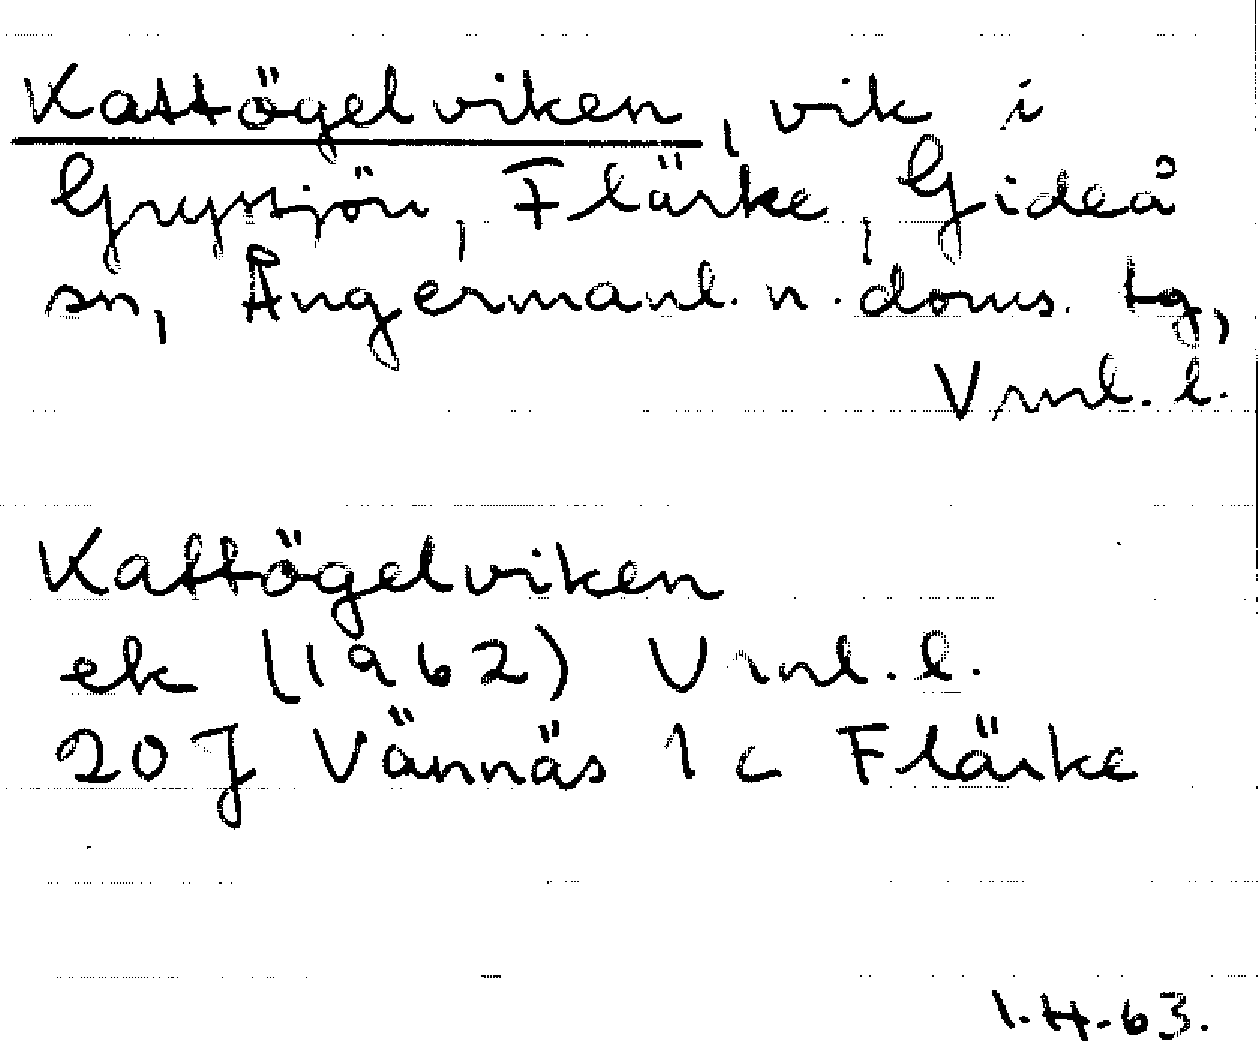 Kattögelviken, vik i
Gryssjön, Flärke, Gideå
sn, Ångermanl. n. doms. tg,
Vrnl. l.
Kattögelviken
ek (1962) Vrnl. l.
20 J Vännäs 1 c Flärke
1.4.63.